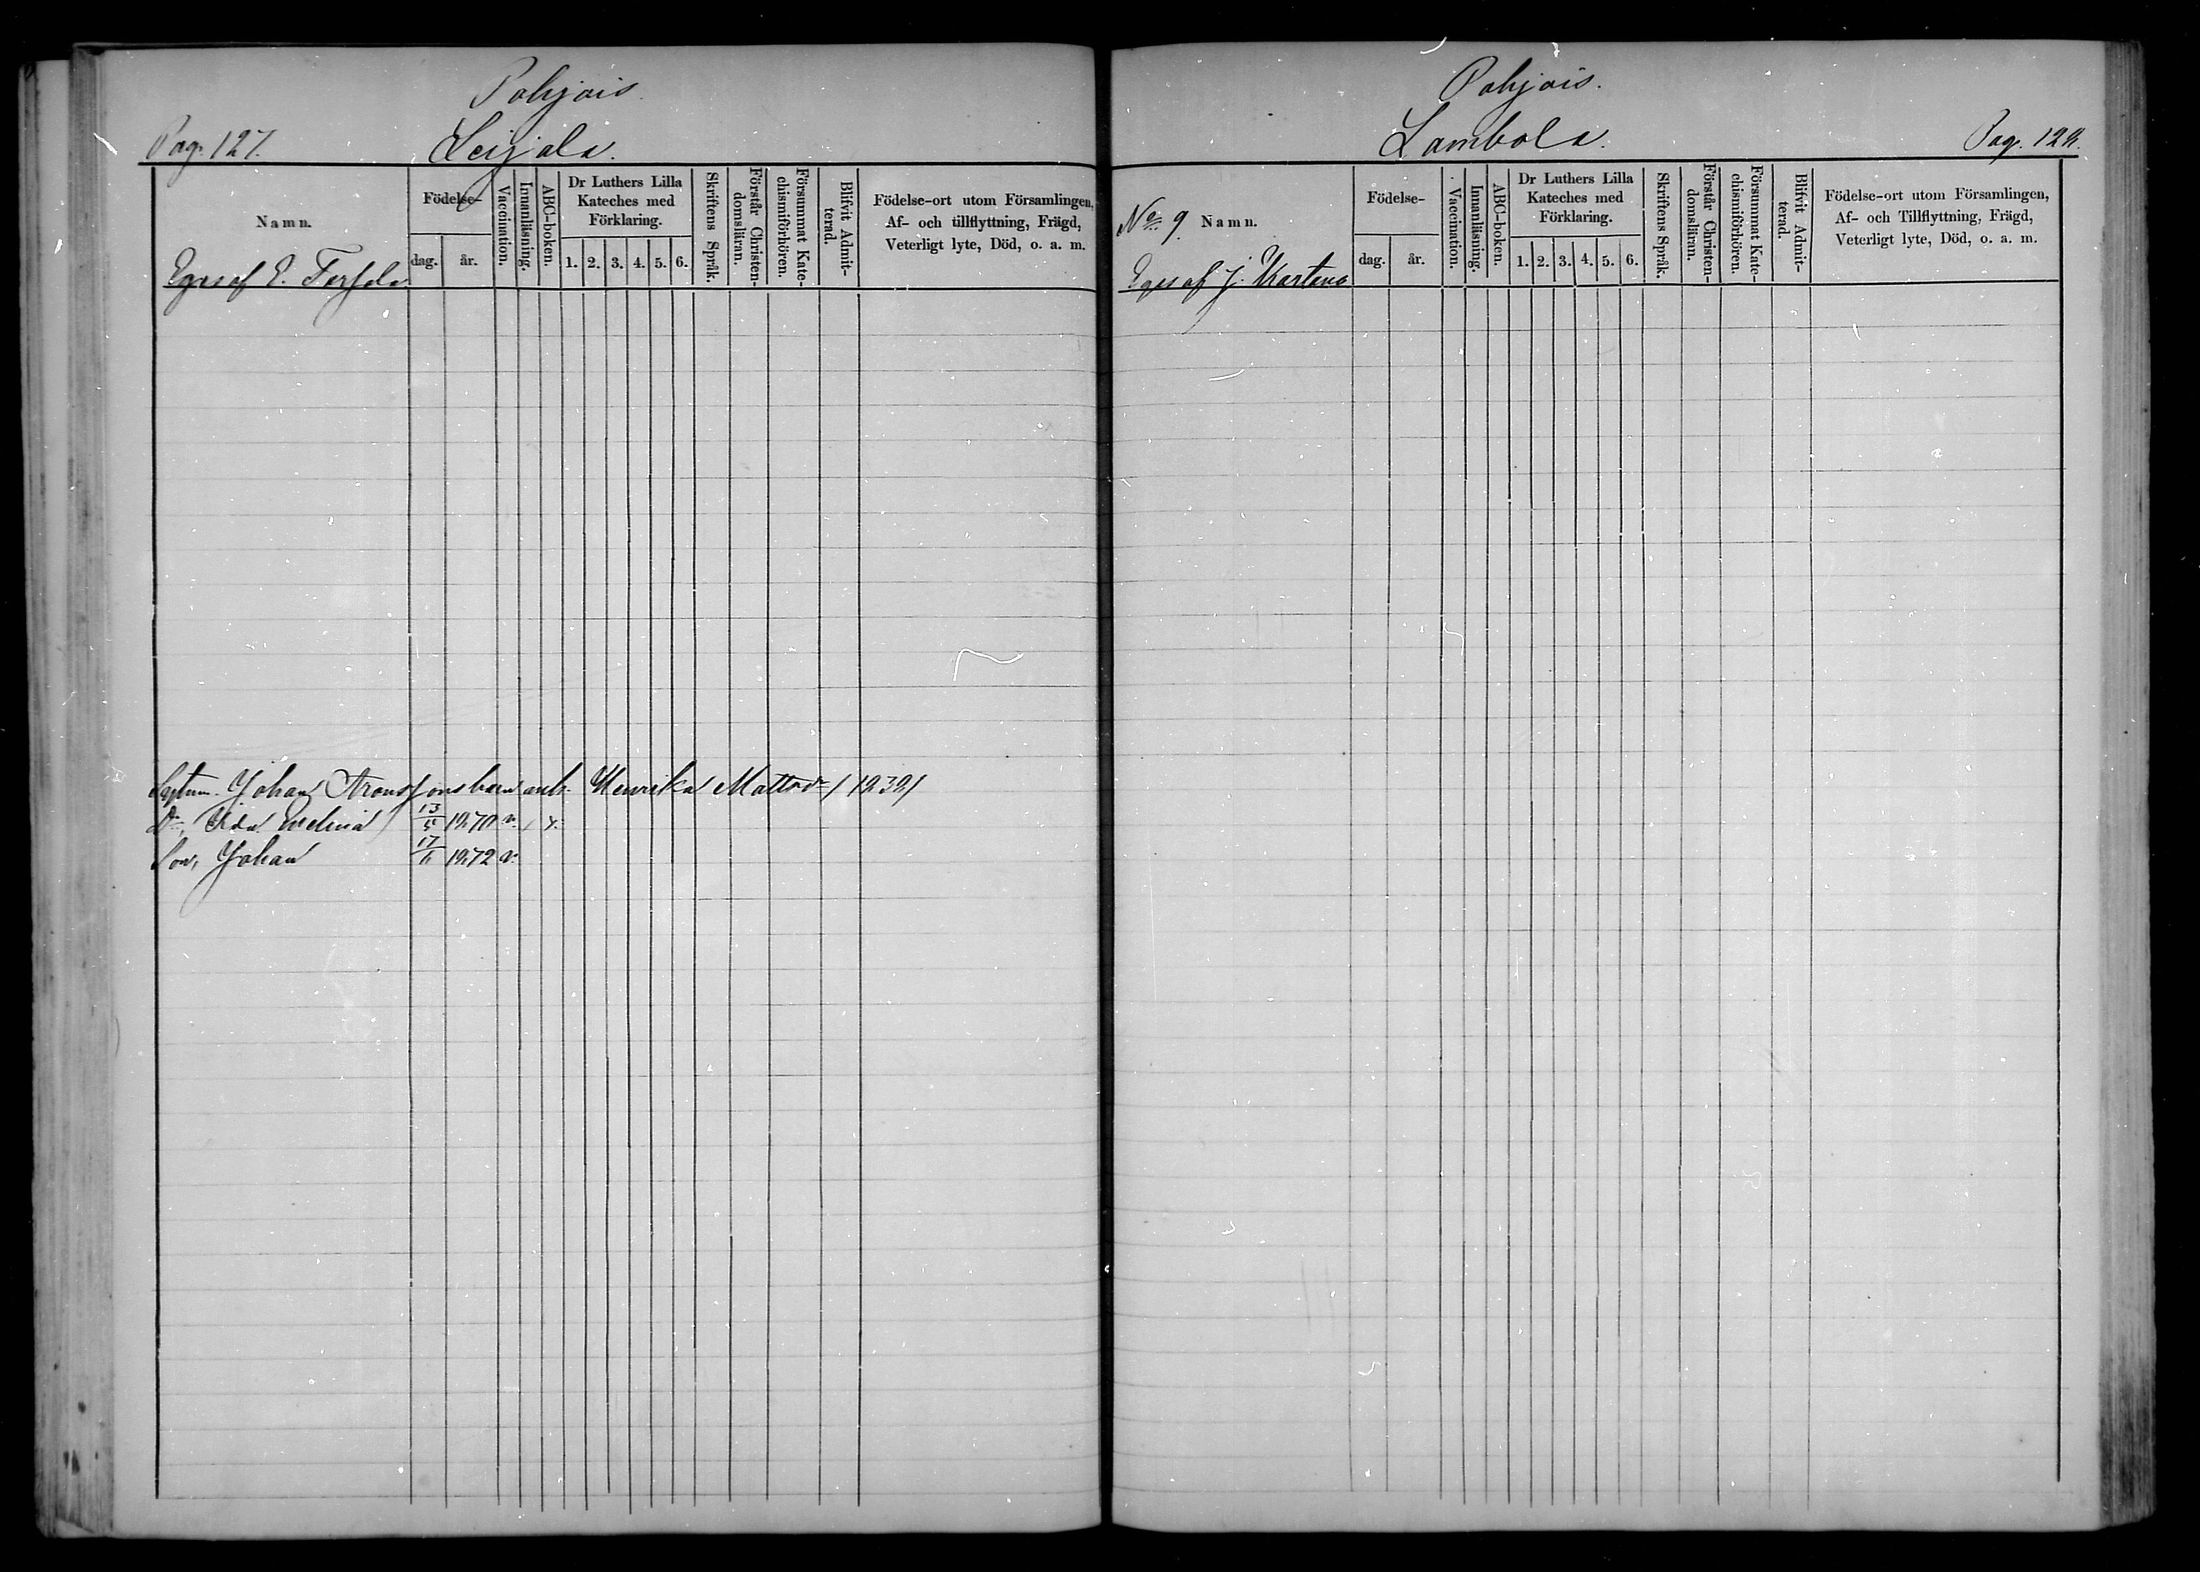 Pohjois
Pag. 127.
Leijala.
Namn.
Födelse-
dag.
år.
Vaccination.
Innanläsning.
ABC-boken.
Dr Luthers Lilla
Kateches med
Förklaring.
1. 2. 3. 4. 5. 6.
Skriftens Språk.
Förstår Christen-
domsläran.
Försummat Kate-
chismiförhören.
Blifvit Admit-
terad.
Födelse-ort utom Församlingen,
Af- och tillflyttning, Frägd,
Veterligt lyte, Död, o. a. m.
Eges af E.
Johan Aronssons barn Henrika Mattsdr / 1839/
Dr, Ida Evelina 13/5 1870 v. / x.
Son, Johan 17/11 1872 v.
Pohjois.
Lambola.
Pag. 128.
No 9.
Namn.
Födelse-
dag.
år.
Vaccination.
Innanläsning.
ABC-boken.
Dr Luthers Lilla
Kateches med
Förklaring.
1. 2. 3. 4. 5. 6.
Skriftens Språk.
Förstår Christen-
domsläran.
Försummat Kate-
chismiförhören.
Blifvit Admit-
terad.
Födelse-ort utom Församlingen,
Af- och Tillflyttning, Frägd,
Veterligt lyte, Död, o. a. m.
Eges af J. Kartano